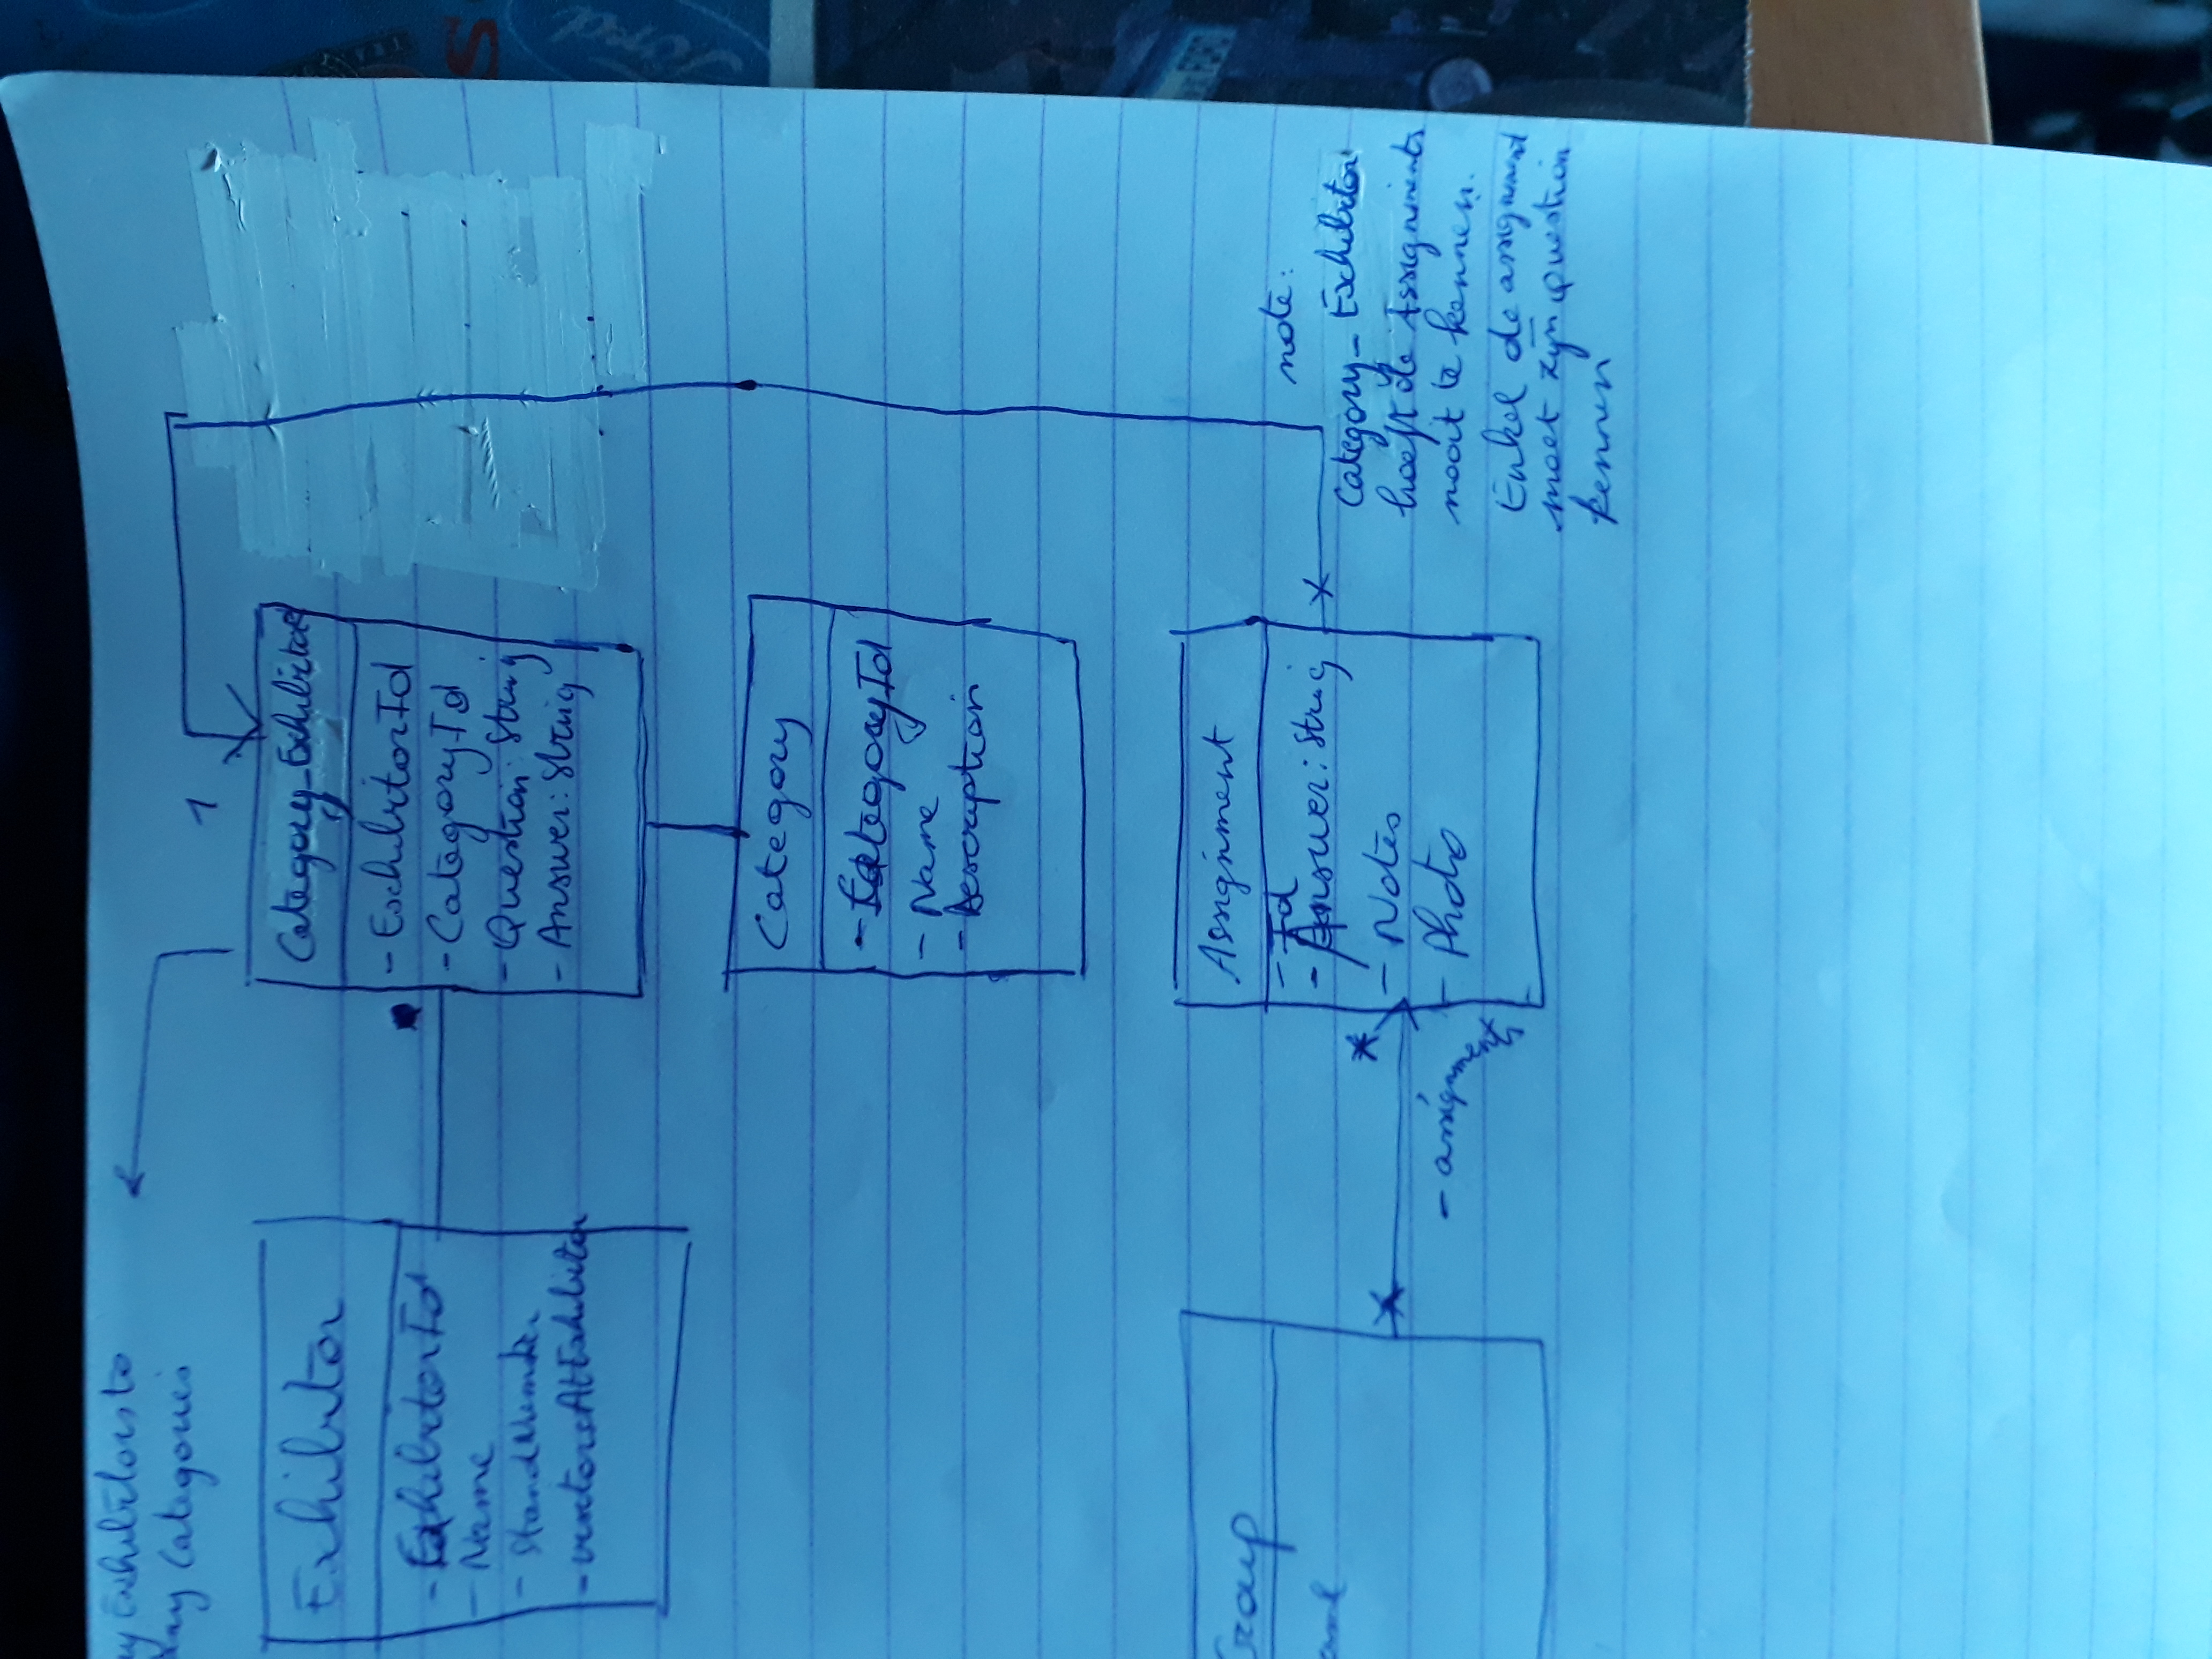 Exhibitors to
Categories
1
Exhibitor
- ExhibitorId
- Name
- StandNumber
- visitorsAtExhibitor
Category_Exhibitor
- ExhibitorId
- CategoryId
- Question: String
- Answer: String
Category
- CategoryId
- Name
- Description
Group
*
*
- assignments
Assignment
- Id
- Answer: String
- Notes
- Photo
note:
Category_Exhibitor
hoeft de Assignments
nooit te kennen.
Enkel de assignment
moet zijn question
kennen
S
Ford
FORD